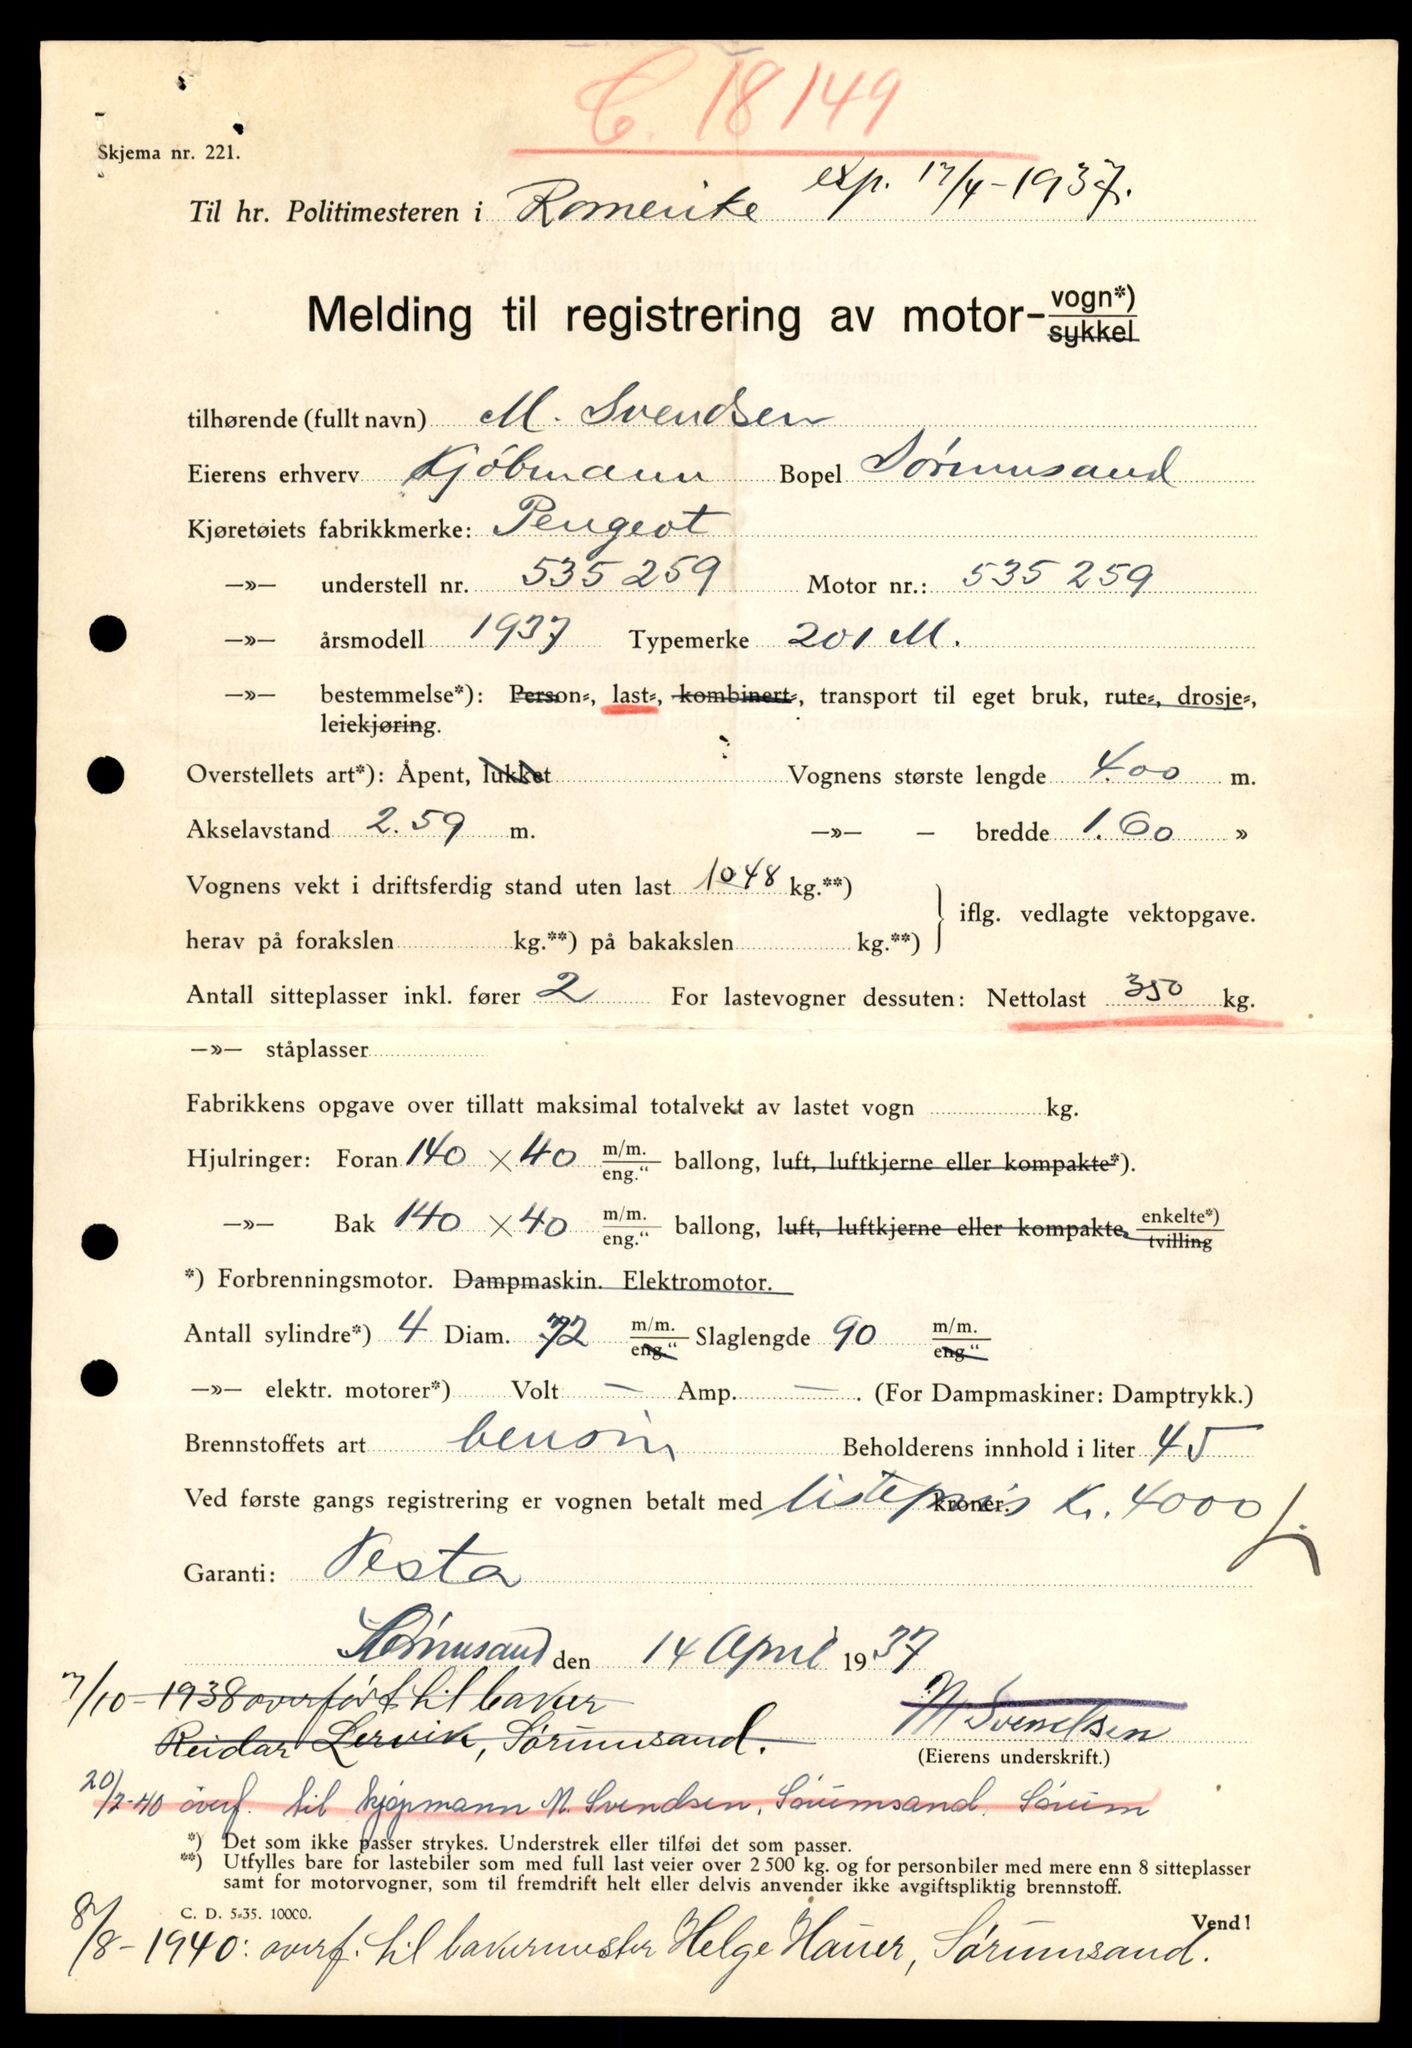 C. 18149
Skjema nr. 221.
exp. 17/4-1937.
Til hr. Politimesteren i Romerike
Melding til registrering av motor- vogn*) sykkel
tilhørende (fullt navn) M. Svendsen
Eierens erhverv Kjöbmann Bopel Sørumsand
Kjøretøiets fabrikkmerke: Peugeot
—»— understell nr. 535259 Motor nr.: 535259
—»— årsmodell 1937 Typemerke 201 M.
—»— bestemmelse*): Person-, last-, kombinert-, transport til eget bruk, rute-, drosje-,
leiekjøring.
Overstellets art*): Åpent, lukket Vognens største lengde 4.00 m.
Akselavstand 2.59 m. —»— – bredde 1.60 »
Vognens vekt i driftsferdig stand uten last 1048 kg.**)
iflg. vedlagte vektopgave.
herav på forakslen kg.**) på bakakslen kg.**)
Antall sitteplasser inkl. fører 2 For lastevogner dessuten: Nettolast 350 kg.
—»— ståplasser
Fabrikkens opgave over tillatt maksimal totalvekt av lastet vogn kg.
Hjulringer: Foran 140 × 40 m/m. eng." ballong, luft, luftkjerne eller kompakte*).
—»— Bak 140 × 40 m/m. eng." ballong, luft, luftkjerne eller kompakte, enkelte*) tvilling
*) Forbrenningsmotor. Dampmaskin. Elektromotor.
Antall sylindre*) 4 Diam. 72 m/m. eng." Slaglengde 90 m/m. eng."
—»— elektr. motorer*) Volt — Amp. — . (For Dampmaskiner: Damptrykk.)
Brennstoffets art bensin Beholderens innhold i liter 45
Ved første gangs registrering er vognen betalt med listepris kroner. Kr. 4000
Garanti: Vesta
Sørumsand den 14 April 1937
7/10-1938 overført til baker
Reidar Lervik, Sørumsand.
M Svendsen
(Eierens underskrift.)
20/2-40 overf. til kjøpmann M. Svendsen, Sørumsand, Sørum
*) Det som ikke passer strykes. Understrek eller tilføi det som passer.
**) Utfylles bare for lastebiler som med full last veier over 2 500 kg. og for personbiler med mere enn 8 sitteplasser
samt for motorvogner, som til fremdrift helt eller delvis anvender ikke avgiftspliktig brennstoff.
C. D. 5-35. 10000.
Vend!
8/8-1940: overf. til bakermester Helge Hauer, Sørumsand.